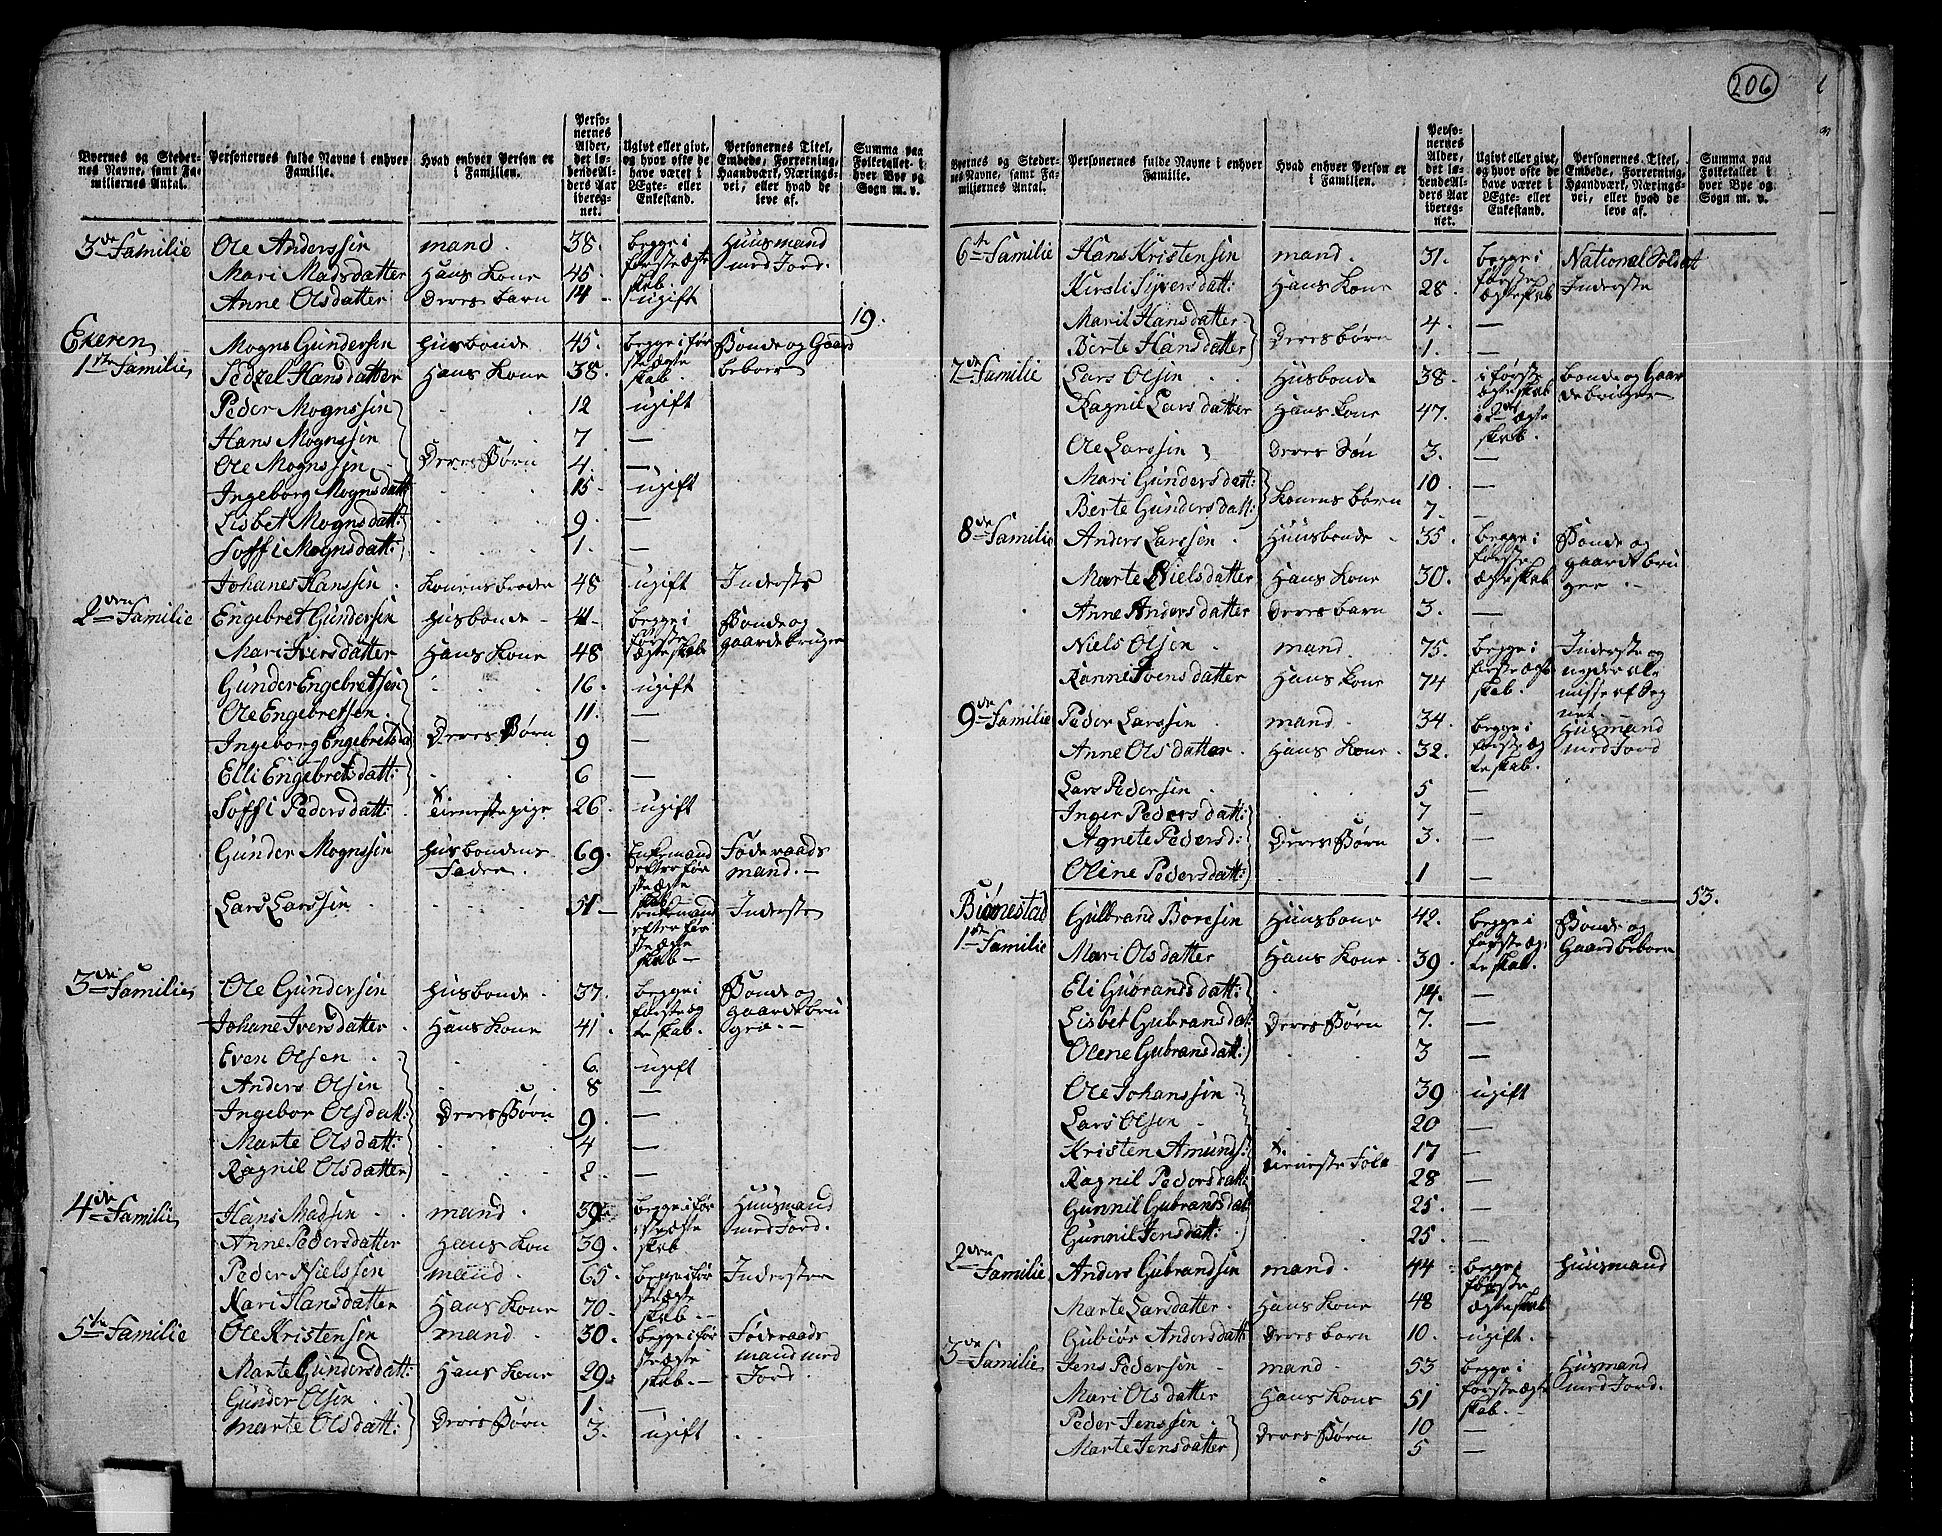 Byernes og Steder-
nes Navne, samt Fa-
miliernes Antal.
Personernes fulde Navne i enhver
Familie.
Hvad enhver Person er
i Familien.
Perso-
nernes
Alder,
det lø-
bende Al-
ders Aar
ibereg-
net.
Ugivt eller givt,
og hvor ofte de
have været i
Ægte- eller
Enkestand.
Personernes Titel,
Embede, Forretning,
Haandværk, Nærings-
vei, eller hvad de
leve af.
Summa paa
Folketallet i
hver Bye og
Sogn m. v.
3de Familie Ole Anderssin mand. 38. begge i første ægte skab. Huusmand med Jord.
Mari Madsdatter Hans Kone 45.
Anne Olsdatter Deres barn 14 ugift
19.
Ekeren
1ste Familie Mogns Gundersin Husbonde 45. begge i første ægte skab. Bonde og Gaard beboer
Sedzel Hansdatter Hans Kone 38.
Peder Mognssin 12 ugift
Hans Mognssin 7 —
Ole Mognssin Deres Børn 4. —
Ingeborg Mognsdatt: 15 ugift
Lisbet Mognsdatt: 9. —
Soffi Mognsdatt: 1. —
Johanes Hanssin Konens broder 48 ugift Inderste
2den Familie Engebret Gundersin Husbonde 41 begge i første ægteskab Bonde og gaardebruger
Mari Iversdatter Hans Kone 48
Gunder Engebretsen 16. ugift
Ole Engebretsen 11. —
Ingeborg Engebretsda Deres Børn 9 —
Elli Engebretsdatt: 6 —
Soffi Pedersdatt: tieneste pige 26. ugift
Gunder Mognssin Husbondens Fader. 69. Enkemand efter første ægte skab Føderaads mand.
Lars Larssin 51 enkemand efter første ægte skab Inderste
3de Familie Ole Gundersin Husbonde 37. begge i første ægteskab. Bonde og gaardebru
Johane Iversdatter Hans Kone 41.
Even Olsen 6. ugift
Anders Olsin 8 —
Ingebor Olsdatt: Deres Børn 9. —
Marte Olsdatt: 4 —
Ragnil Olsdatter 2. —
4de Familie Hans Madsin mand. 39. begge i første ægte skab Huusmand med Jord.
Anne Pedersdatter Hans Kon 39.
Peder Nielssen mand. 65. begge i første ægte skab. Inderster
Kari Hansdatter Hans Kone 70.
5te Familie Ole Kristensin mand. 30. begge i første ægte skab. Føderaads mand med Jord.
Marte Gundersdatt: Hans Kone 29.
Gunder Olsin 1. —
Marte Olsdatt: Deres Børn 3. ugift
206
Byernes og Steder-
nes Navne, samt Fa-
miliernes Antal.
Personernes fulde Navne i enhver
Familie.
Hvad enhver Person er
i Familien.
Perso-
nernes
Alder,
det lø-
bende Al-
ders Aar
ibereg-
net.
Ugivt eller givt,
og hvor ofte de
have været i
Ægte- eller
Enkestand.
Personernes Titel,
Embede, Forretning,
Haandværk, Nærings-
vei, eller hvad de
leve af.
Summa paa
Folketallet i
hver Bye og
Sogn m. v.
6te Familie Hans Kristensin mand. 31. begge i første ægteskab National Soldat Inderste
Kirsti Syversdatt: Hans Kone 28.
Maril Hansdatter 4. —
Berte Hansdatter Deres børn 1. —
7de Familie Lars Olsin Husbonde 38. i første ægteskab bonde og Gaardebruger
Ragnil Larsdatter Hans Kone 47. i 2det ægte skab.
Ole Larssin Deres Søn 3. —
Mari Gundersdatt: 10. —
Berte Gundersdatt: Konens børn 7. —
8de Familie Anders Larssen Huusbonde 35. begge i første ægteskab Bonde og gaardebruger
Marte Nielsdatter Hans Kone 30.
Anne Andersdatter Deres barn 3. —
Niels Olsin mand. 75. begge i første ægteskab. Inderste og nyder almisse af Sognet.
Ranne Svensdatter Hans Kone 74
9de Familie Peder Larssin mand. 34. begge i første ægteskab. Husmand med Jord
Anne Olsdatter Hans Kone 32.
Lars Pedersin 5 —
Inger Pedersdatt: 7 —
Agnete Pedersd: Deres Børn 3. —
Oline Pedersdatt: 1 —
53.
Biørnestad
1ste Familie Gulbrand Boresin Huusbone 42. begge i første ægteskab. Bonde og Gaardbeboer
Mari Olsdatter Hans Kone 39.
Eli Gubrandsdatt: 14. —
Lisbet Gubransdat: Deres Børn 7. —
Olene Gubransdatt: 3 —
Ole Johanssin 39 ugift
Lars Olsen 20 —
Kristen Amunds: tieneste Folk 17 —
Ragnil Pedersdatt: 28 —
Gunnil Gubrandsdat 25. —
Gunnil Jensdatt: 25. —
2den Familie Anders Gubrandsin mand. 44 begge i første ægteskab Huusmand
Marte Larsdatter Hans Kone 48
Gubiør Andersdatt: Deres barn 10. ugift.
3de Familie Jens Pedersin mand. 53 begge i første ægte skab. Husmand med Jord.
Mari Olsdatter Hans Kone 51
Peder Jenssin 10 —
Marte Jensdatter Deres Børn 5 —